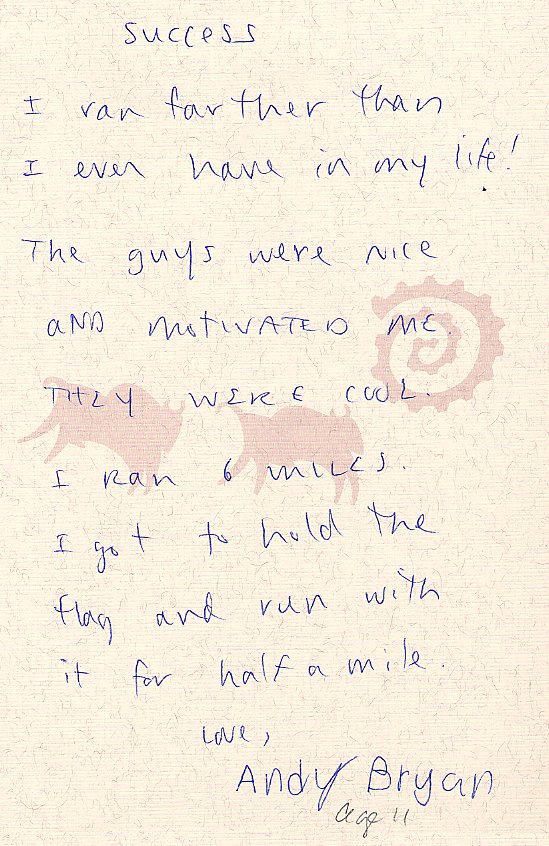 Success
I ran farther than
I ever have in my life!
The guys were nice
AND MOTIVATED ME.
THEY WERE COOL.
I RAN 6 MILES.
I got to hold the
flag and run with
it for half a mile.
Love,
Andy Bryan
age 11